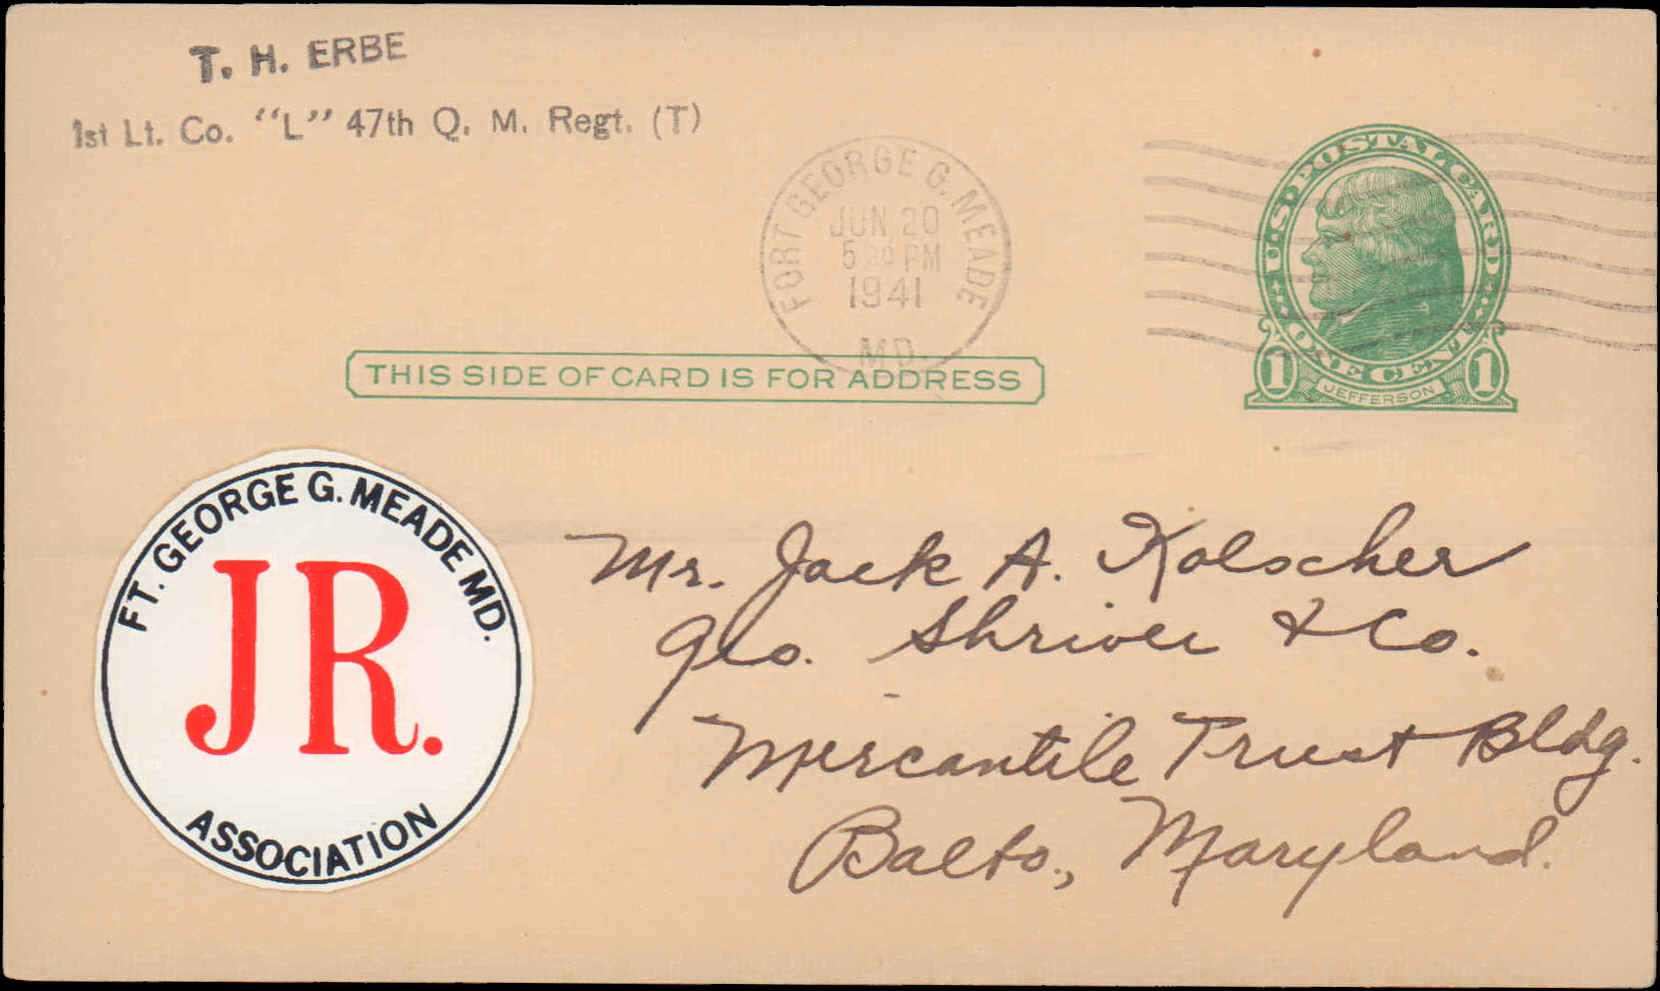 T. H. ERBE
1st Lt. Co. "L" 47th Q. M. Regt. (T)
FORT GEORGE G. MEADE
JUN 20
5 PM
1941
MD.
U.S. POSTAL CARD
ONE CENT
1 JEFFERSON 1
THIS SIDE OF CARD IS FOR ADDRESS
FT. GEORGE G. MEADE MD.
JR.
ASSOCIATION
Mr. Jack A. Kolscher
Geo. Shriver & Co.
Mercantile Trust Bldg.
Balto., Maryland.